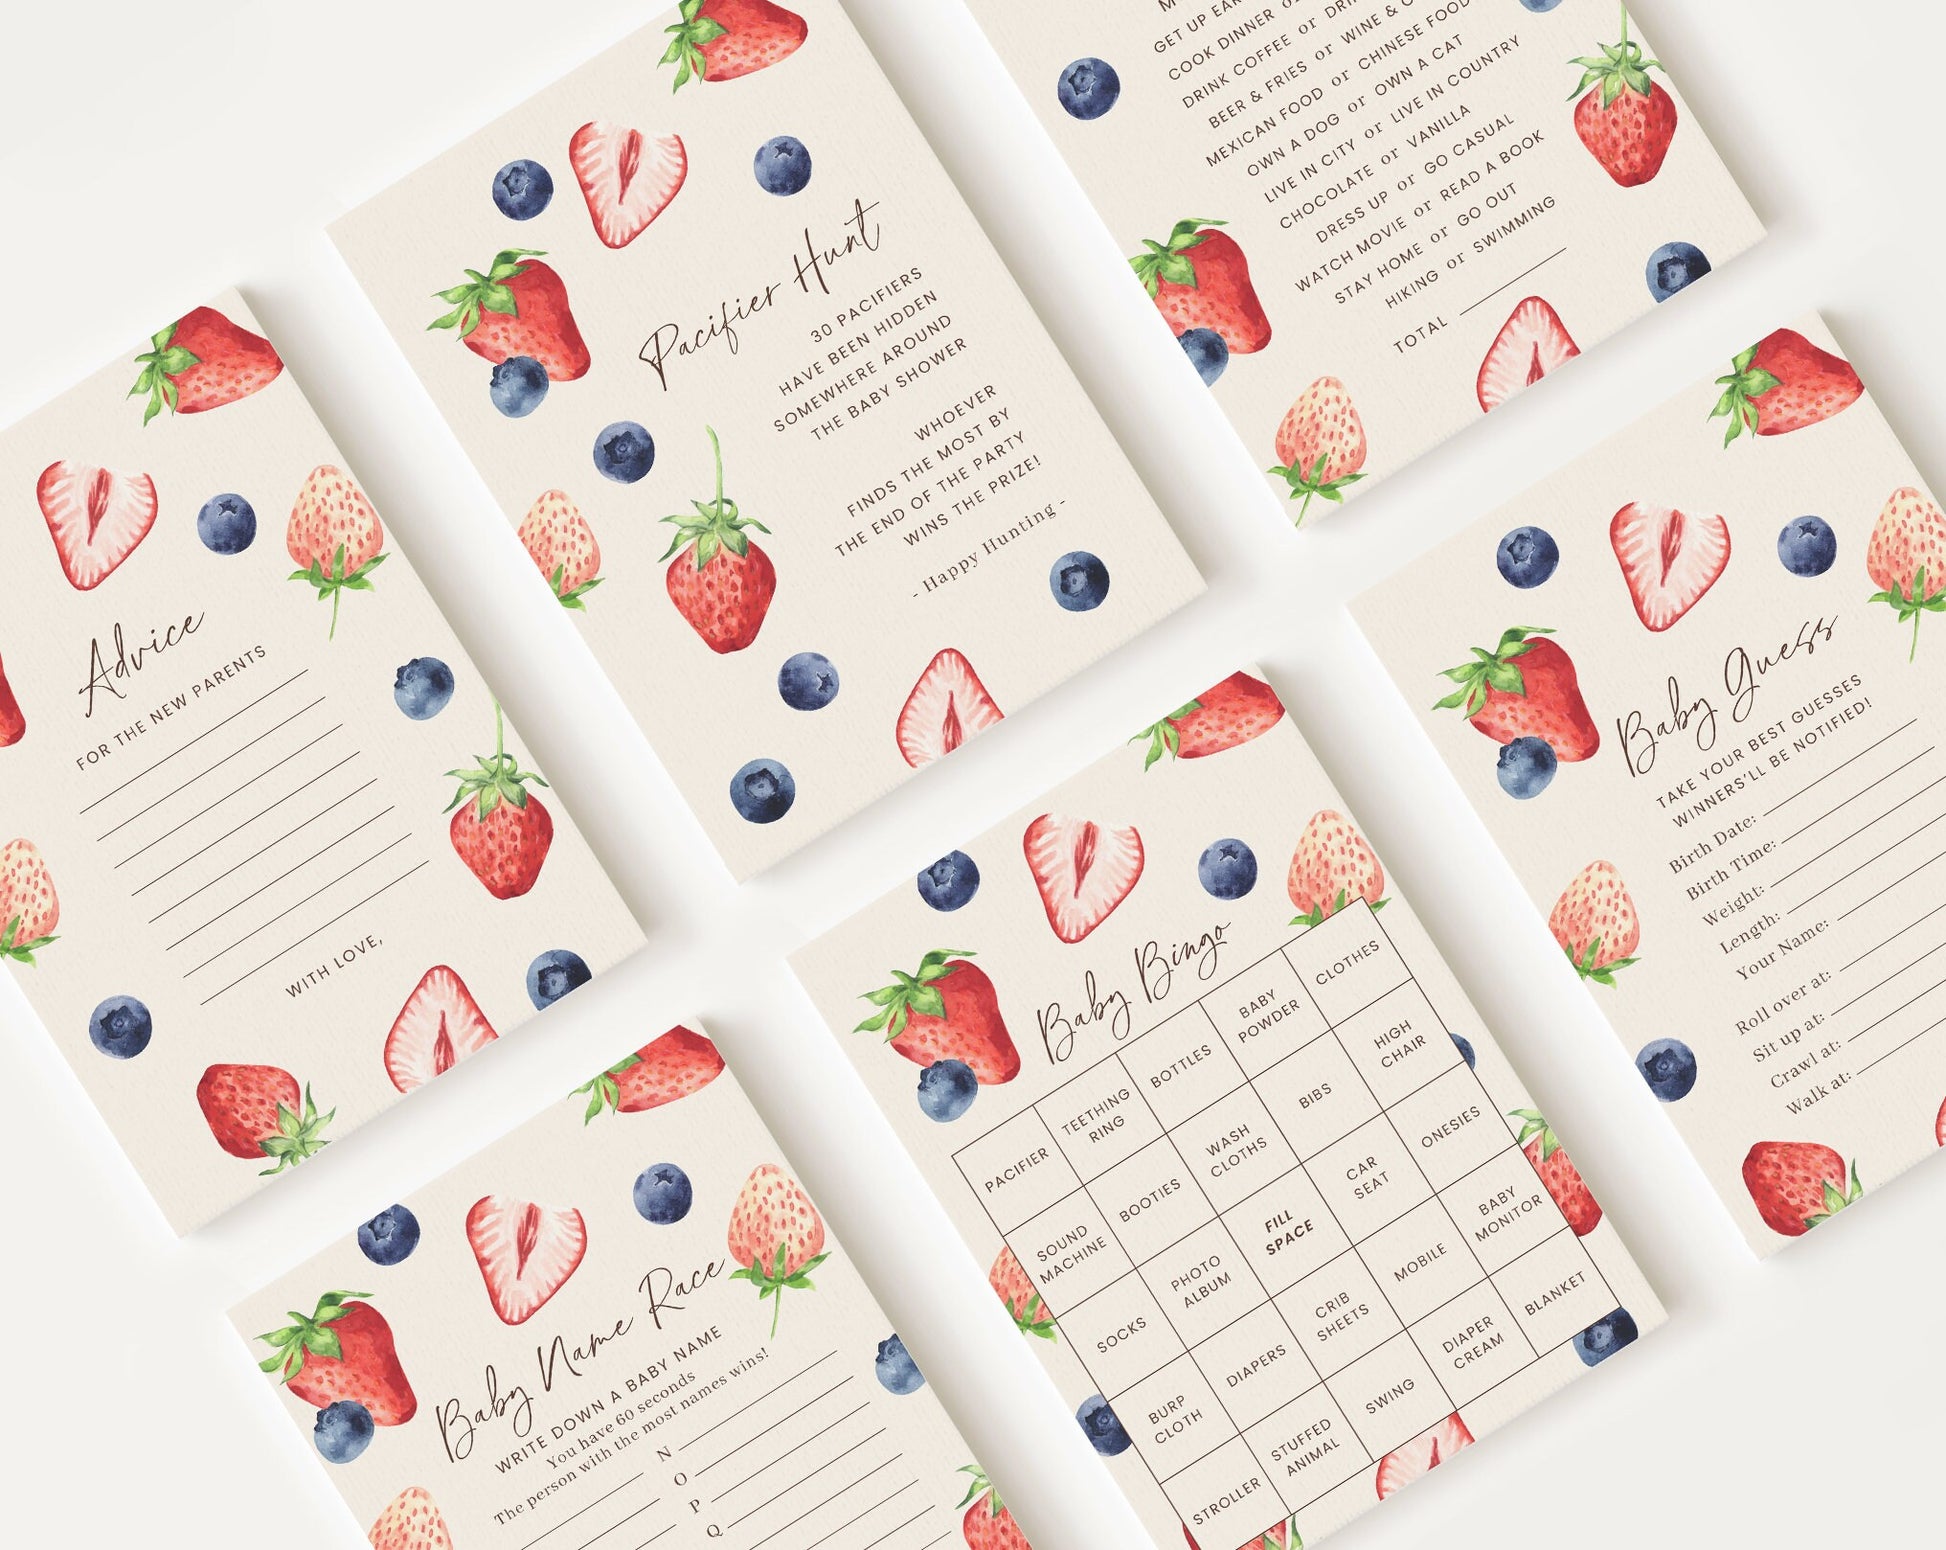 Advice
FOR THE NEW PARENTS
WITH LOVE,
Pacifier Hunt
30 PACIFIERS
HAVE BEEN HIDDEN
SOMEWHERE AROUND
THE BABY SHOWER
WHOEVER
FINDS THE MOST BY
THE END OF THE PARTY
WINS THE PRIZE!
- Happy Hunting -
GET UP
COOK DINNER or
DRINK COFFEE or
BEER & FRIES or WINE &
MEXICAN FOOD or CHINESE FOOD
OWN A DOG or OWN A CAT
LIVE IN CITY or LIVE IN COUNTRY
CHOCOLATE or VANILLA
DRESS UP or GO CASUAL
WATCH MOVIE or READ A BOOK
STAY HOME or GO OUT
HIKING or SWIMMING
TOTAL
Baby Name Race
WRITE DOWN A BABY NAME
You have 60 seconds
The person with the most names wins!
N
O
P
Q
Baby Bingo
PACIFIER TEETHING RING BOTTLES BABY POWDER CLOTHES
SOUND MACHINE BOOTIES WASH CLOTHS BIBS HIGH CHAIR
SOCKS PHOTO ALBUM FILL SPACE CAR SEAT ONESIES
BURP CLOTH DIAPERS CRIB SHEETS MOBILE BABY MONITOR
STROLLER STUFFED ANIMAL SWING DIAPER CREAM BLANKET
Baby Guess
TAKE YOUR BEST GUESSES
WINNERS'LL BE NOTIFIED!
Birth Date:
Birth Time:
Weight:
Length:
Your Name:
Roll over at:
Sit up at:
Crawl at:
Walk at: